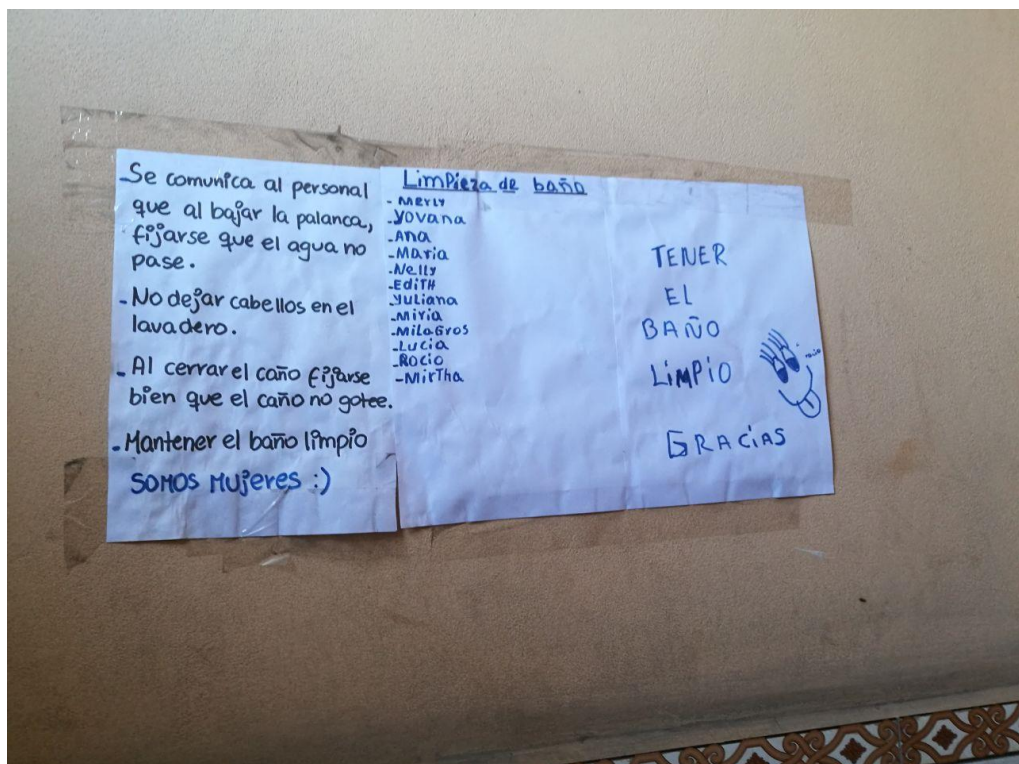 -Se comunica al personal
que al bajar la palanca,
fijarse que el agua no
pase.
-No dejar cabellos en el
lavadero.
-Al cerrar el caño fijarse
bien que el caño no gotee.
-Mantener el baño limpio
SOMOS MUjeres :)
LimPieza de baño
-Merly
-Yovana
-Ana
-Maria
-Nelly
-EdiTH
-Yuliana
-Miria
-MilaGros
-Lucia
-Rocio
-MirTha
TENER
EL
BAÑO
LiMPiO
GRACiAS